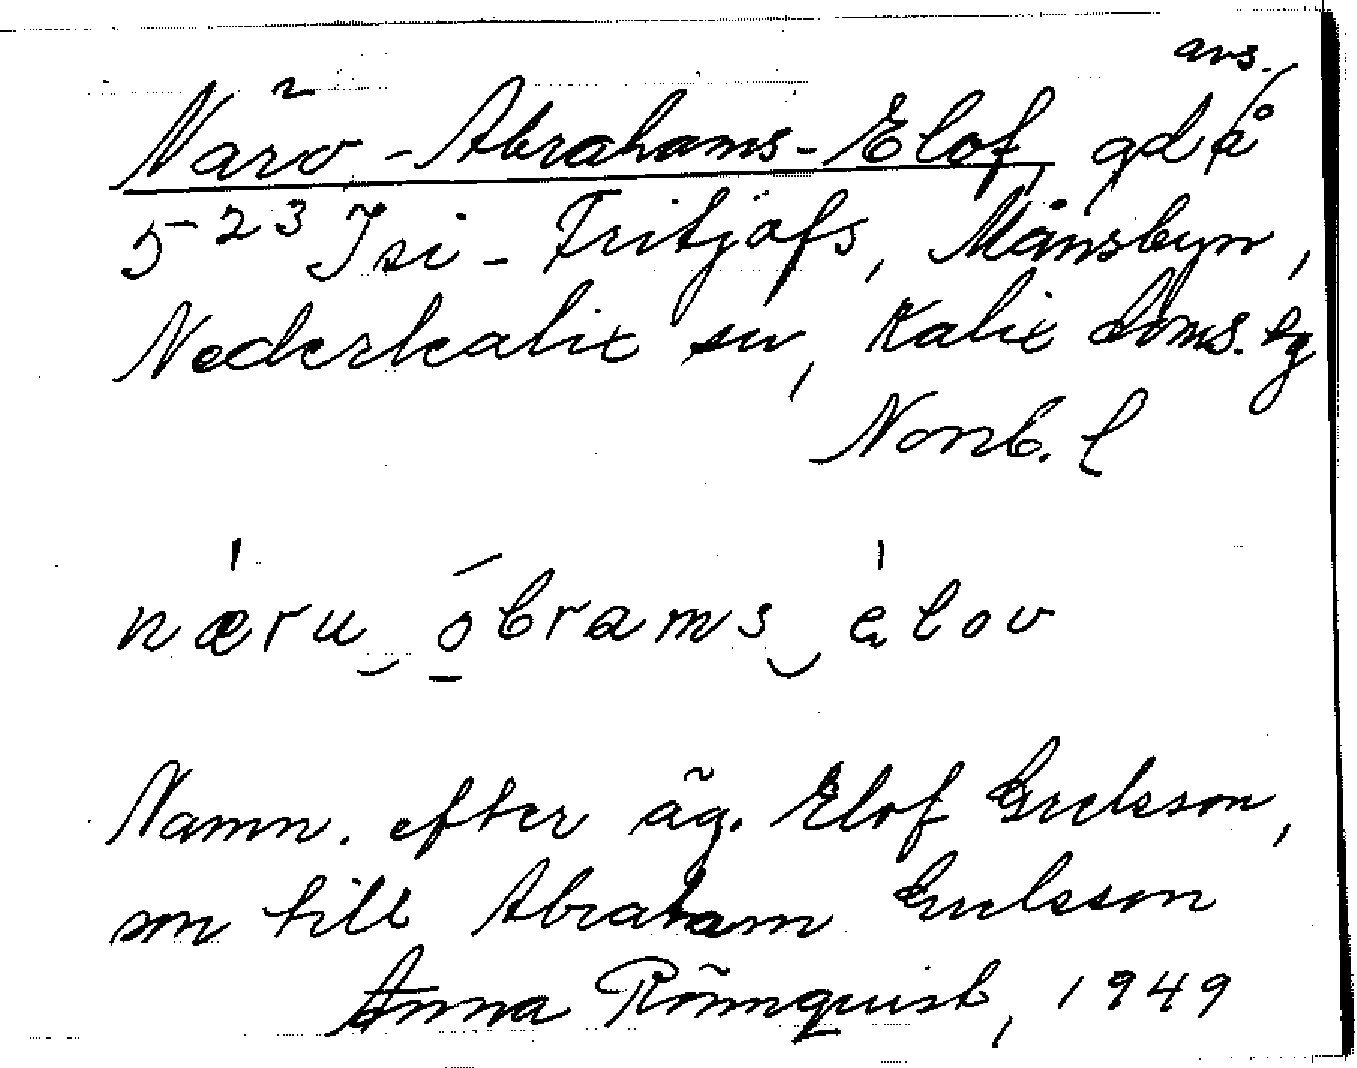 avs.
Närv-Abrahams-Elof, gd på
5²³ Isi-Fritjofs, Månsbyn,
Nederkalix sn, Kalix doms. tg
Norrb. l
næru óbrams élov
Namn. efter äg. Elof Ericsson,
son till Abraham Ericsson
Anna Rönnquist, 1949